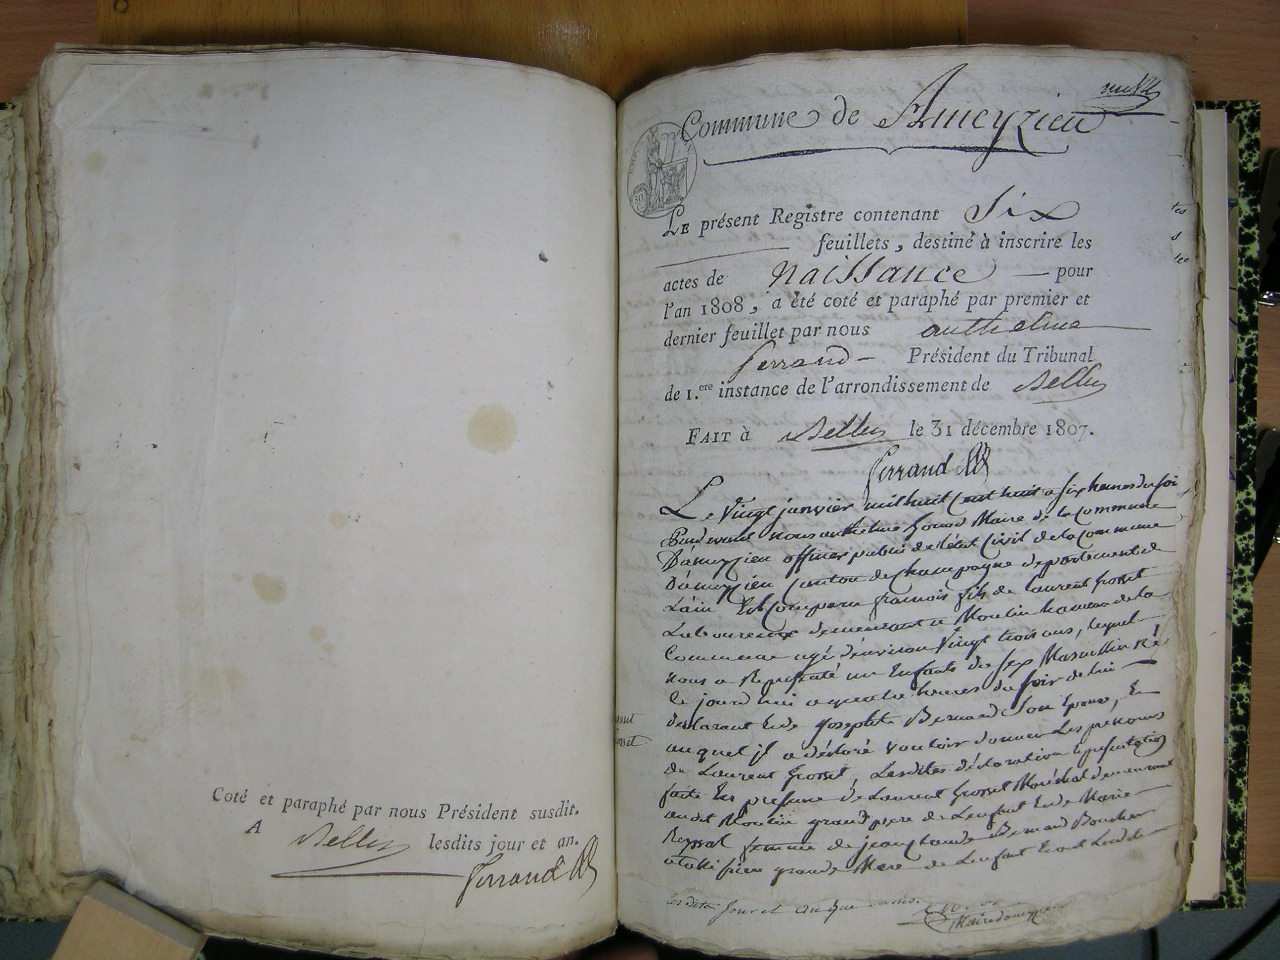 Coté et paraphé par nous Président susdit.
A Belley lesdits jour et an.
Ferrand
Commune de Ameyzieu
LE présent Registre contenant Six
feuillets, destiné à inscrire les
actes de naissance pour
l'an 1808, a été coté et paraphé par premier et
dernier feuillet par nous anthelme
ferrand Président du Tribunal
de 1.ere instance de l'arrondissement de Belley
FAIT à Belley le 31 décembre 1807.
ferrand
Le Vingt janvier mil huit Cent huit a Six heures du soir
Pardevant nous anthelme Maire de la Commune
D'ameyzieu officier public de l'état Civil de la Commune
D'ameyzieu Canton de Champagne departement de
L'ain Est Comparu françois fils de Laurent Grosset
Laboureur demeurant a Moulin hameau de la
Commune agé d'environ Vingt trois ans, lequel
nous a Représenté un Enfant du Sex Masculin Né
le jourd'hui a quatre heures du soir de lui
déclarant Et de Josephte Bernard Son Epouse, Et
auquel il a déclaré vouloir donner Les prénoms
de Laurent Grosset, Lesdites déclaration Et présentation
faite En présence de Laurent Grosset Maréchal demeurant
audit Moulin grand pere de L'enfant Et de Marie
femme de jean Claude Bernard
grande Mere de L'enfant Et ont
Lesdits jour et an que
Maire d'ameyzieu